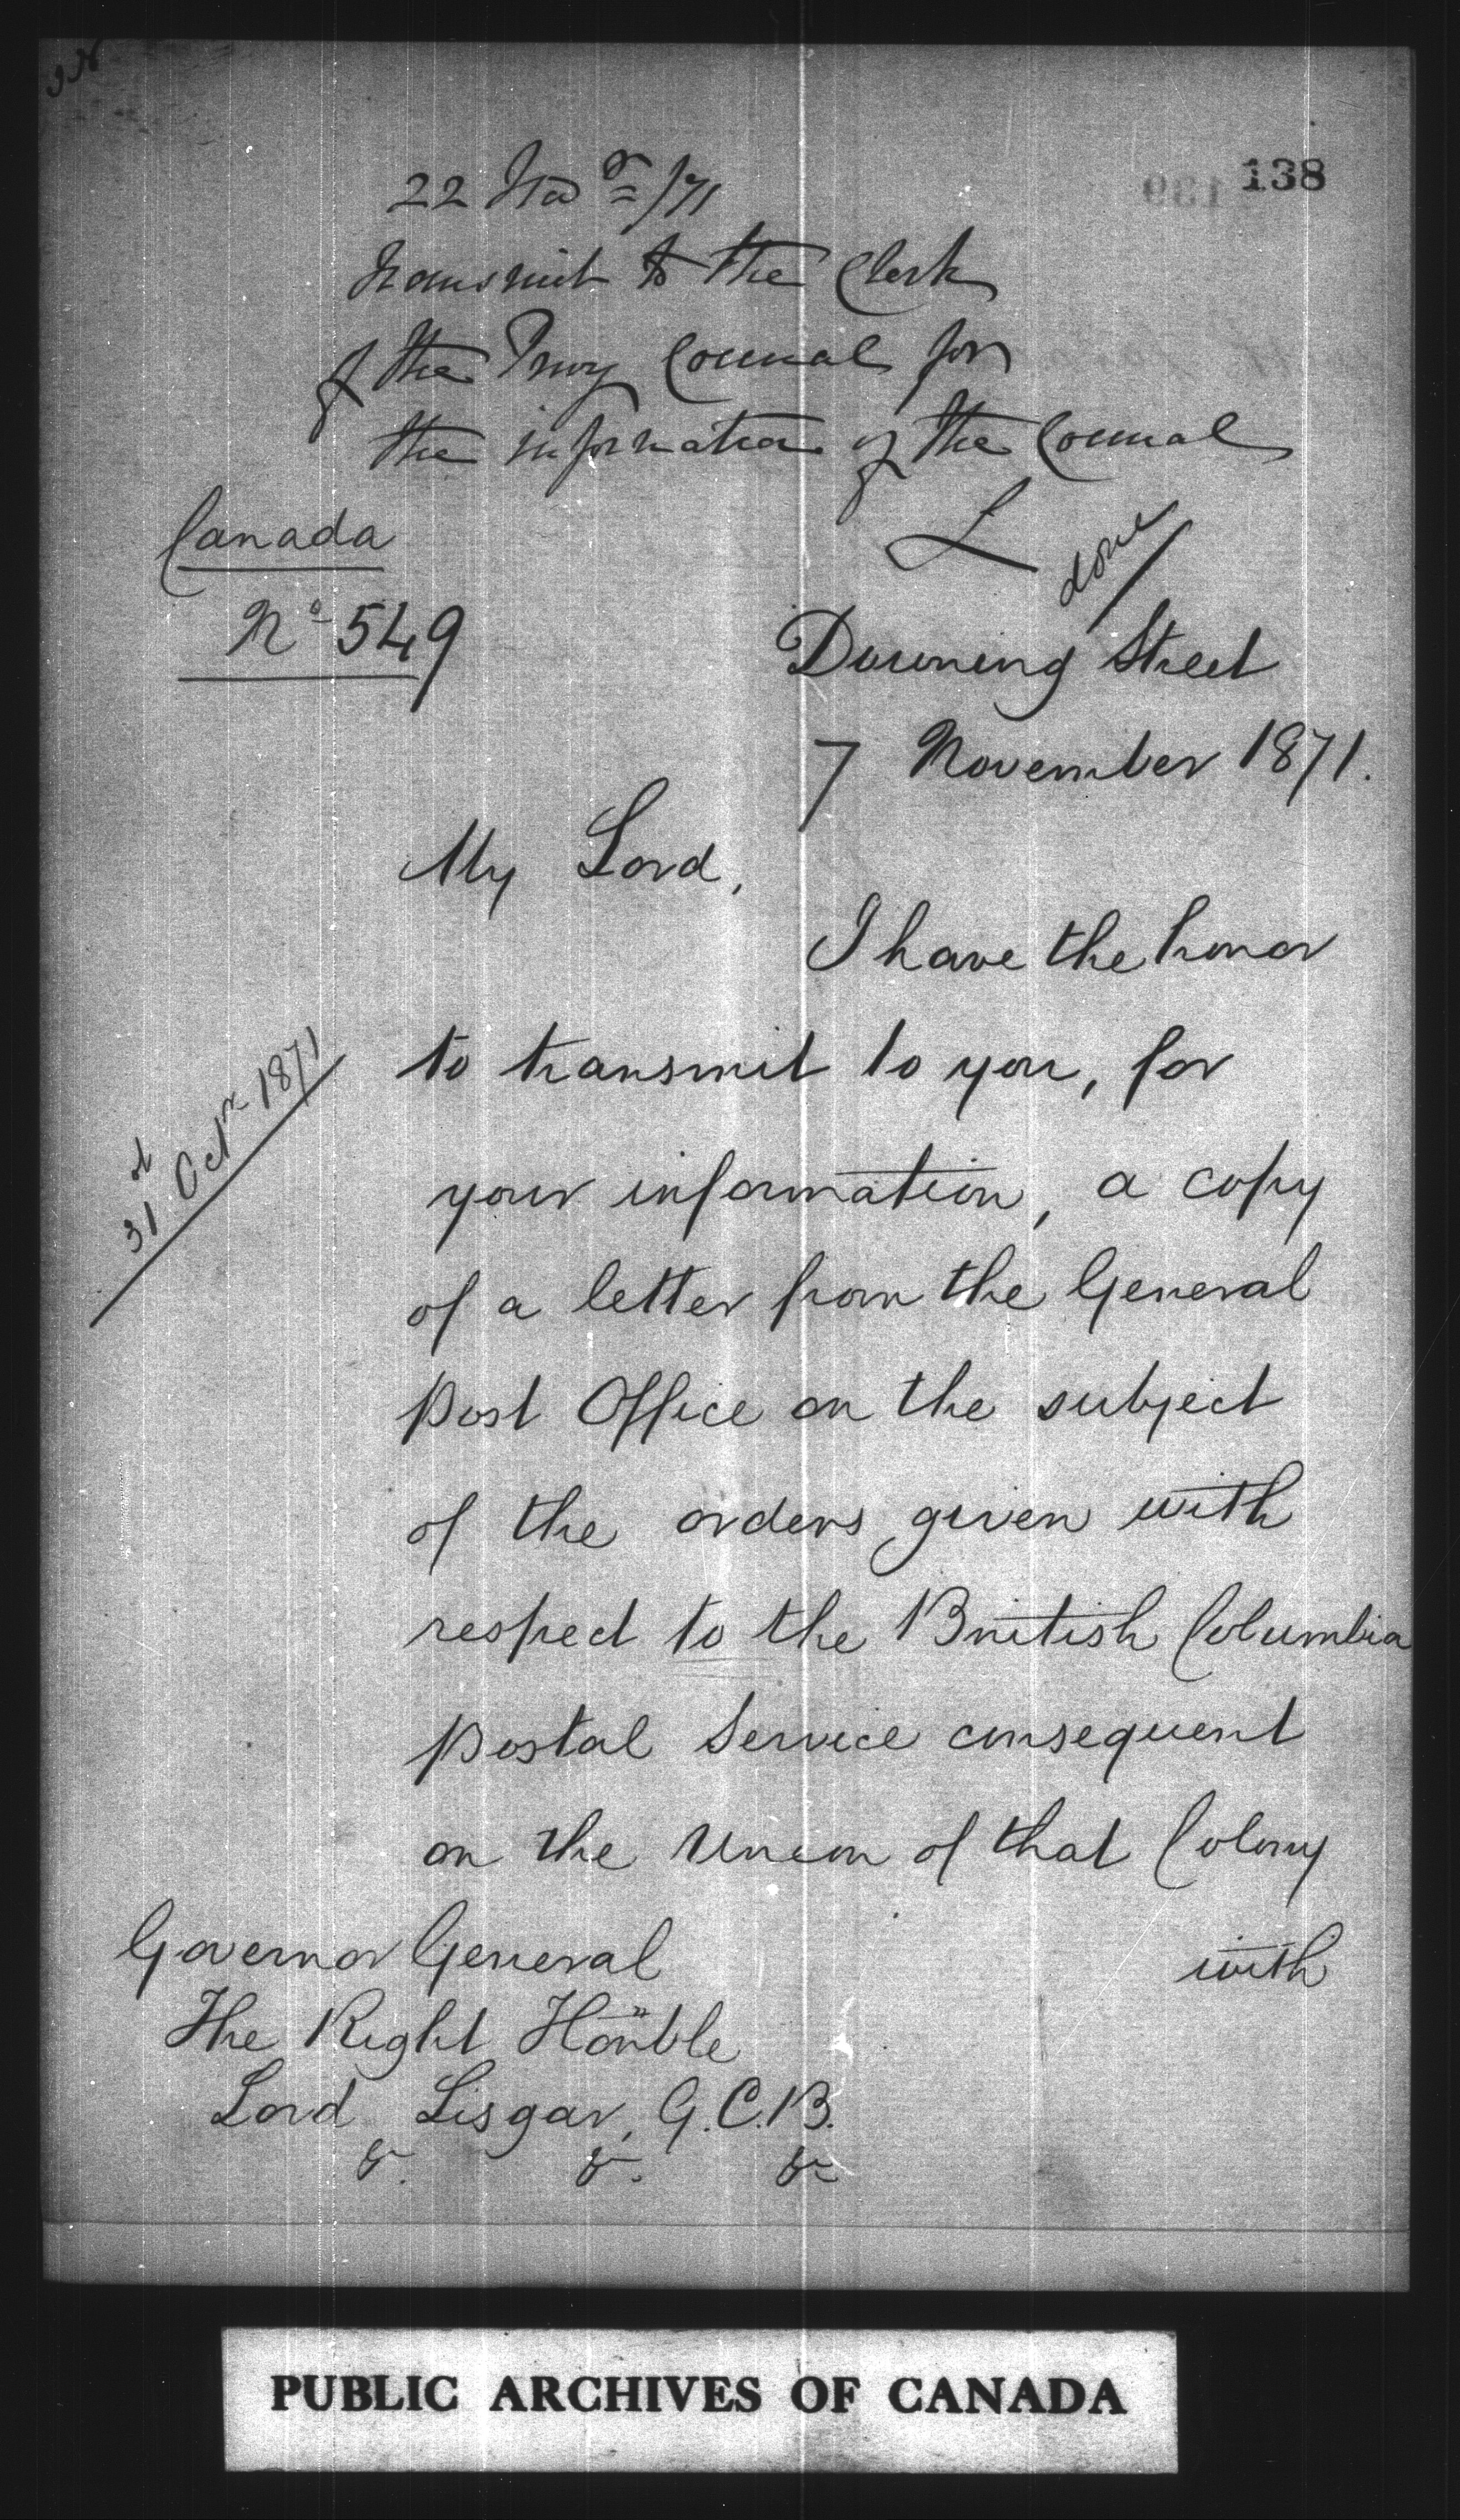 138
22 Novr /71
Transmit to the Clerk
of the Privy Council for
the information of the Council
L
done
Canada
No 549
Downing Street
7 November 1871.
My Lord,
I have the honor
to transmit to you, for
31st Octr 1871
your information, a copy
of a letter from the General
Post Office on the subject
of the orders given with
respect to the British Columbia
Postal Service consequent
on the Union of that Colony
with
Governor General
The Right Honble
Lord Lisgar, G.C.B.
&c. &c. &c
PUBLIC ARCHIVES OF CANADA